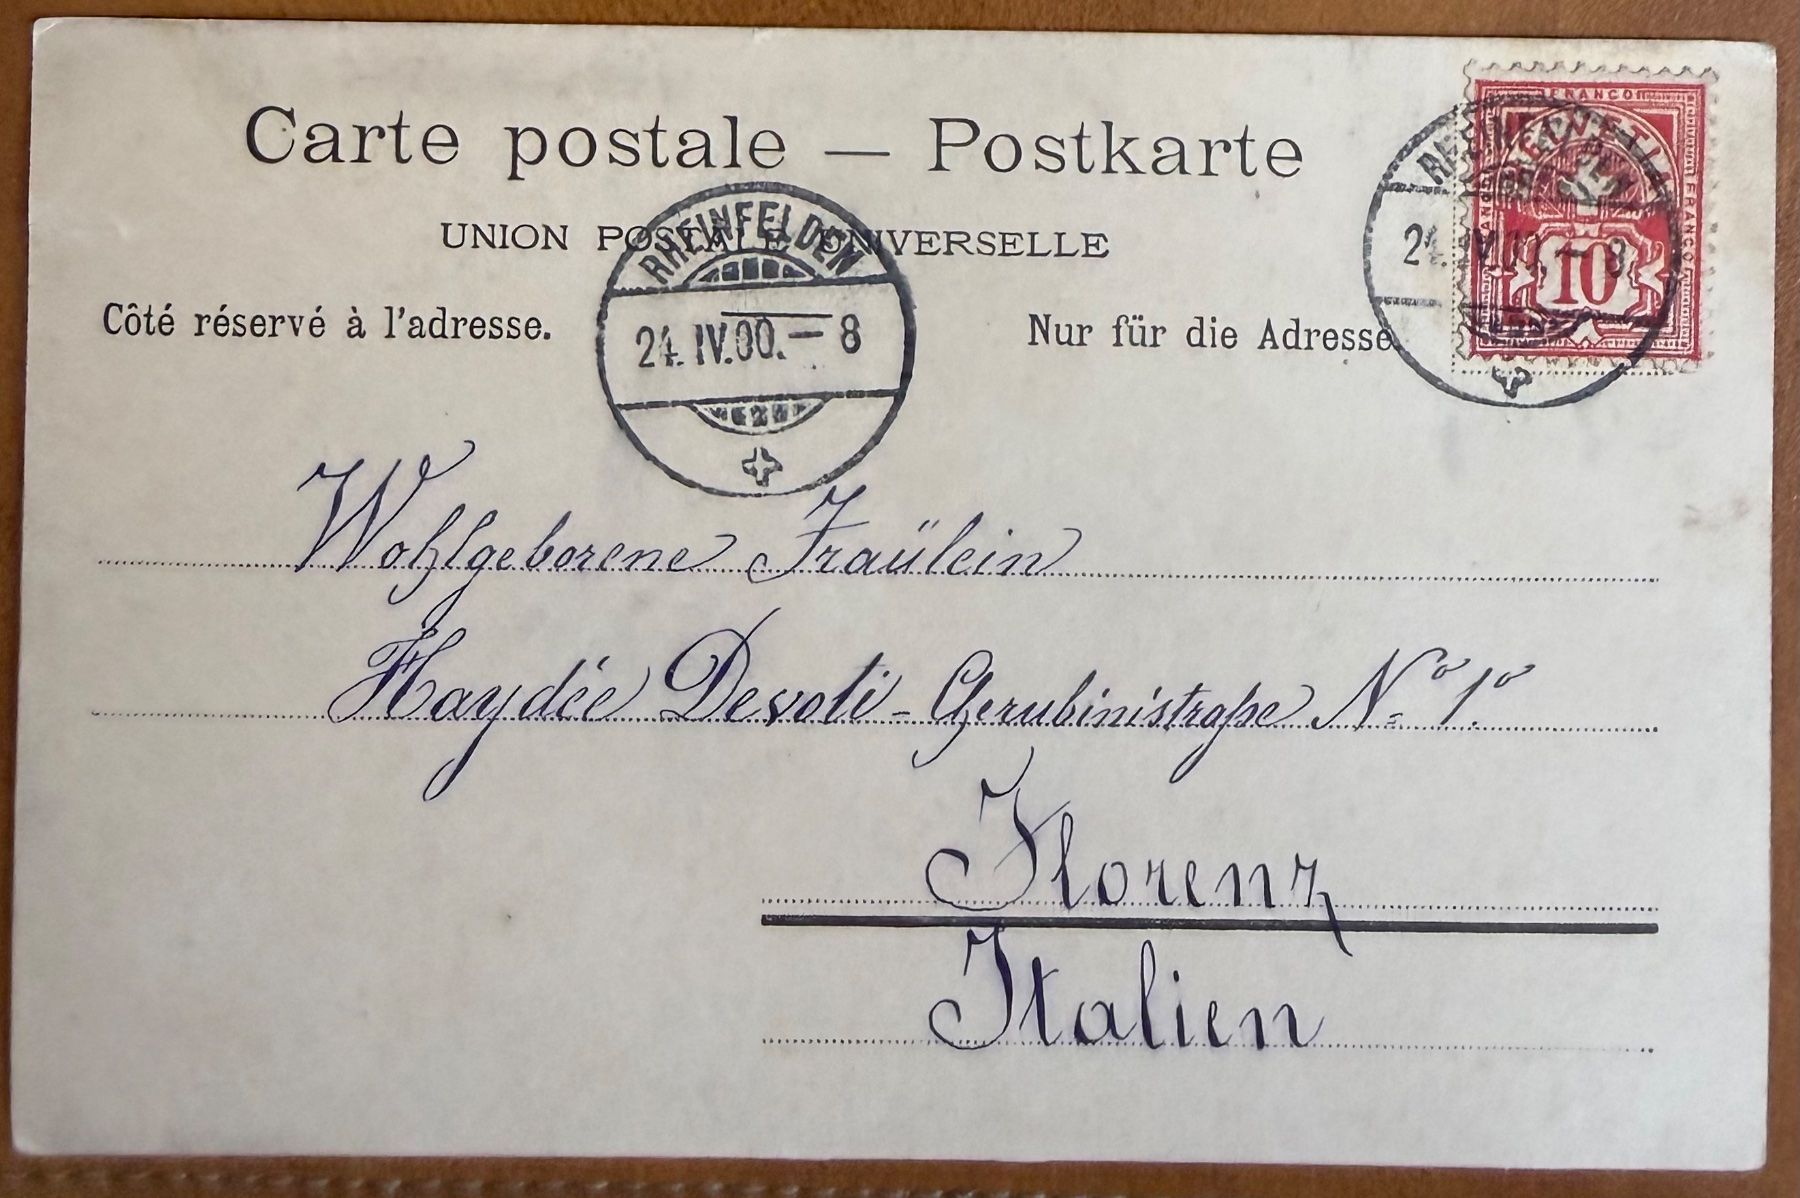 Carte postale — Postkarte
UNION POSTALE UNIVERSELLE
Côté réservé à l'adresse.
Nur für die Adresse.
RHEINFELDEN
24.IV.00.–8
FRANCO
HELVETIA
FRANCO
10
RHEINFELDEN
24.IV.00.–8
Wohlgeborene Fraülein
Haydée Devoti - Cherubinistraße No 1.o
Florenz
Italien